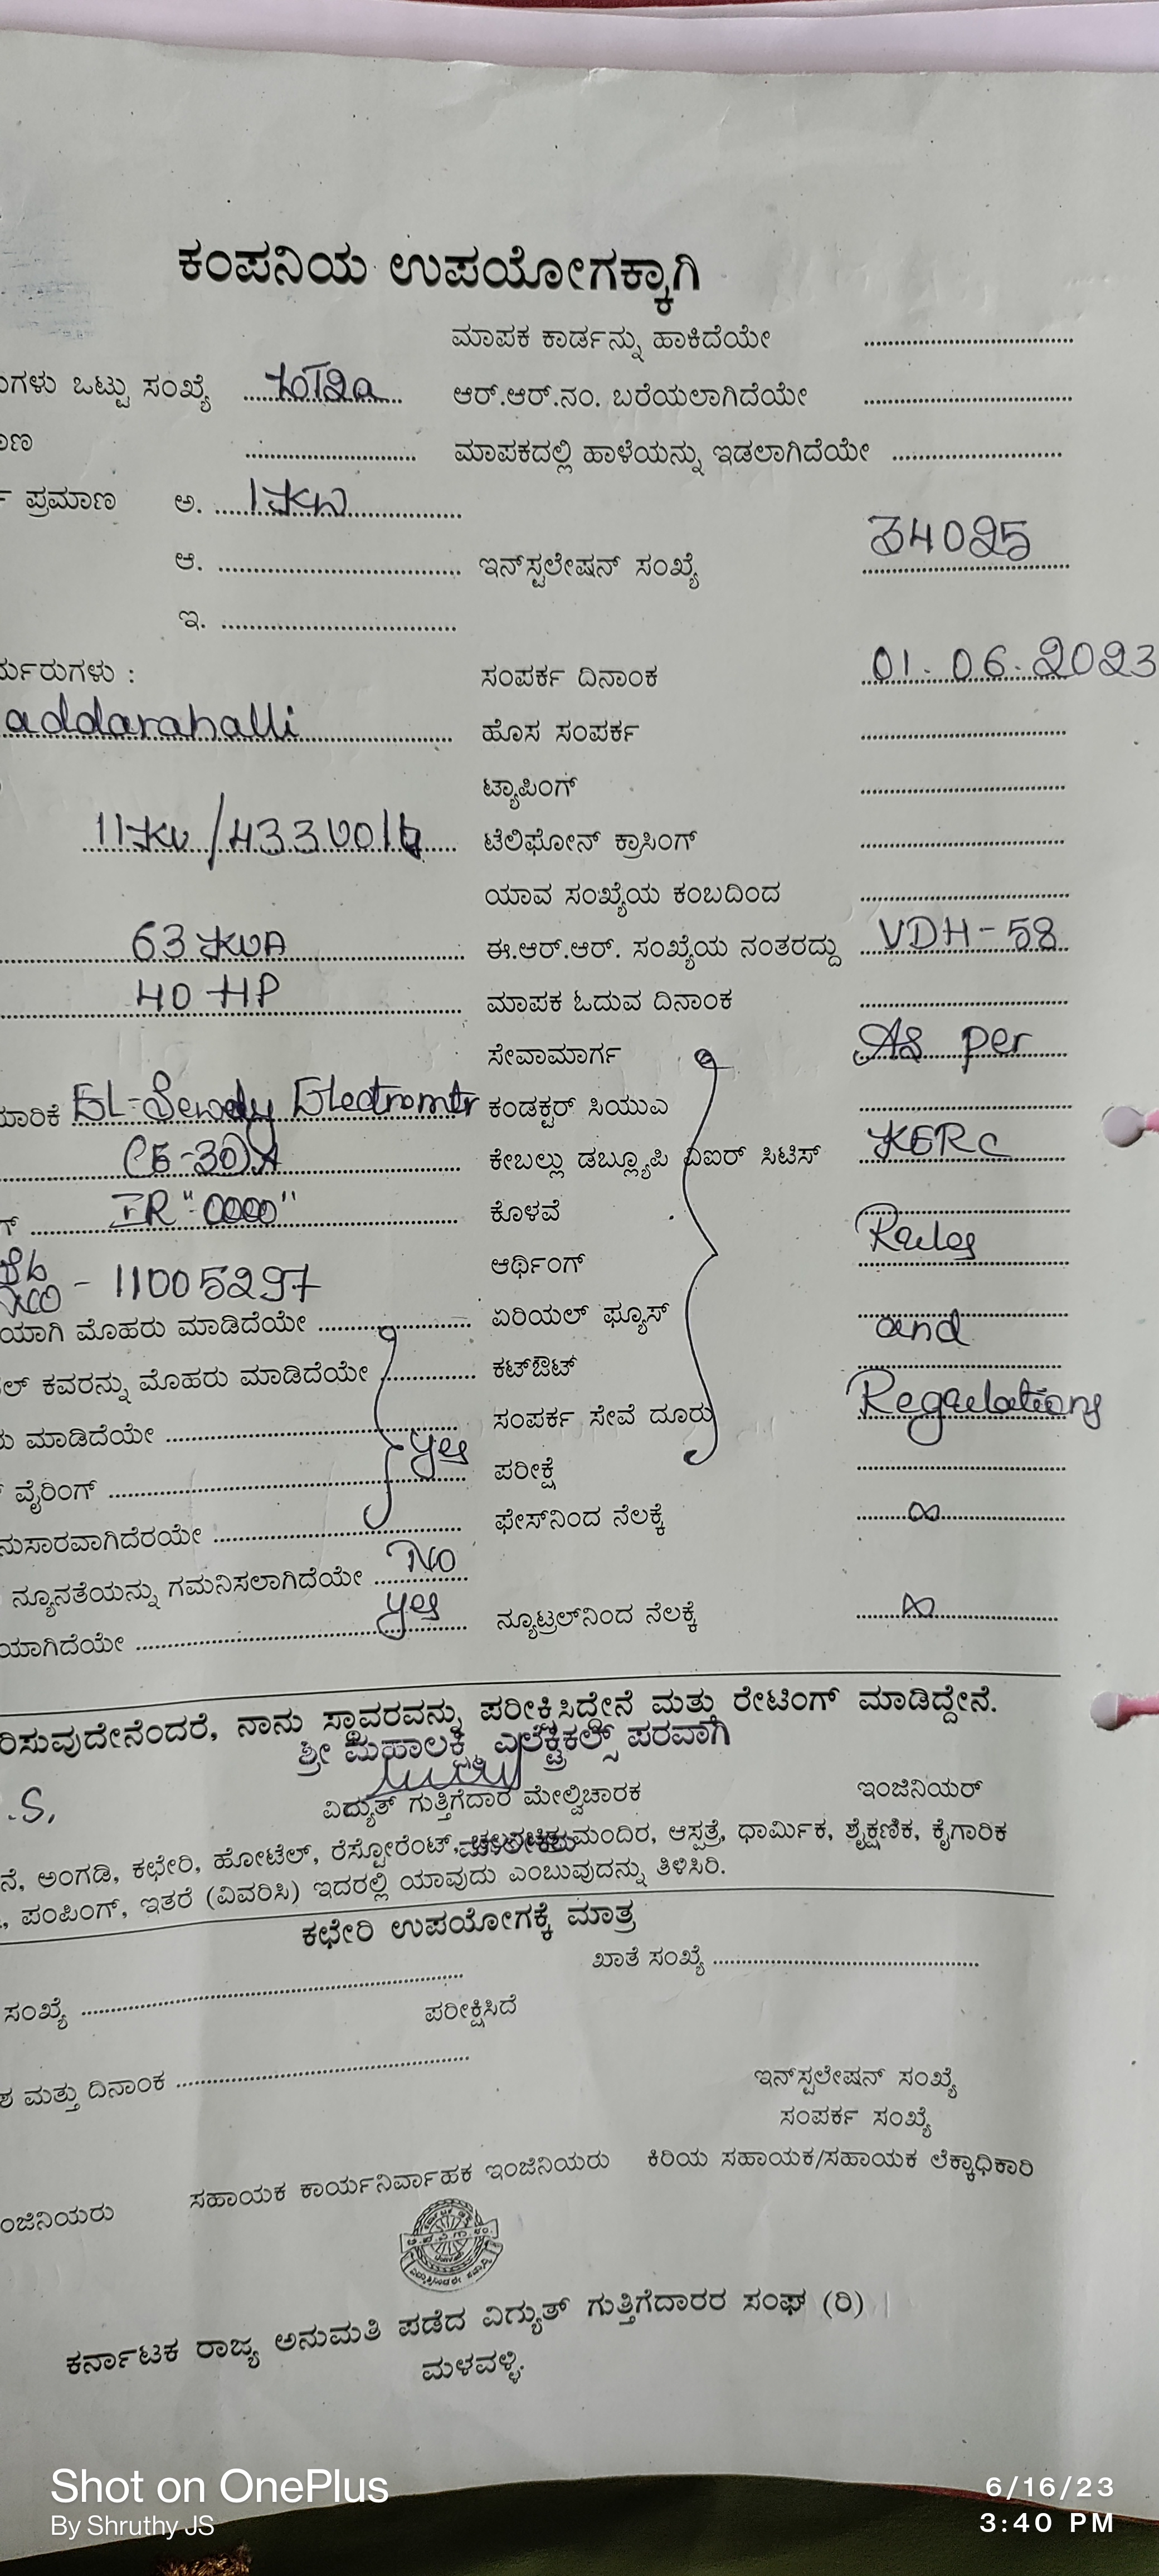 ಕಂಪನಿಯ ಉಪಯೋಗಕ್ಕಾಗಿ
ಮಾಪಕ ಕಾರ್ಡನ್ನು ಹಾಕಿದೆಯೇ
ಗಳು ಒಟ್ಟು ಸಂಖ್ಯೆ ಆರ್.ಆರ್.ನಂ. ಬರೆಯಲಾಗಿದೆಯೇ
ಮಾಪಕದಲ್ಲಿ ಹಾಳೆಯನ್ನು ಇಡಲಾಗಿದೆಯೇ
ಪ್ರಮಾಣ ಅ. 1KW
ಆ. ಇನ್‌ಸ್ಟಲೇಷನ್ ಸಂಖ್ಯೆ 34025
ಇ.
ರ್ಮರುಗಳು : ಸಂಪರ್ಕ ದಿನಾಂಕ 01.06.2023
addarahalli ಹೊಸ ಸಂಪರ್ಕ
ಟ್ಯಾಪಿಂಗ್
11KV/433 Volt ಟೆಲಿಫೋನ್ ಕ್ರಾಸಿಂಗ್
ಯಾವ ಸಂಖ್ಯೆಯ ಕಂಬದಿಂದ
63 KVA ಈ.ಆರ್.ಆರ್. ಸಂಖ್ಯೆಯ ನಂತರದ್ದು VDH-58
40 HP ಮಾಪಕ ಓದುವ ದಿನಾಂಕ
ಸೇವಾಮಾರ್ಗ As per
ಮಾರಿಕೆ EL-Sewedy Electrometer ಕಂಡಕ್ಟರ್ ಸಿಯುಎ
(5-30)A ಕೇಬಲ್ಲು ಡಬ್ಲ್ಯೂಪಿ ವಿಐಆರ್ ಸಿಟಿಸ್ KERC
IR "0000" ಕೊಳವೆ Rules
- 11005297 ಆರ್ಥಿಂಗ್
ಯಾಗಿ ಮೊಹರು ಮಾಡಿದೆಯೇ ಏರಿಯಲ್ ಫ್ಯೂಸ್ and
ಲ್ ಕವರನ್ನು ಮೊಹರು ಮಾಡಿದೆಯೇ ಕಟ್‌ಔಟ್
ರು ಮಾಡಿದೆಯೇ ಸಂಪರ್ಕ ಸೇವೆ ದೂರು Regulations
ವೈರಿಂಗ್ yes ಪರೀಕ್ಷೆ
ನುಸಾರವಾಗಿದೆರಯೇ ಫೇಸ್‌ನಿಂದ ನೆಲಕ್ಕೆ ∞
ನ್ಯೂನತೆಯನ್ನು ಗಮನಿಸಲಾಗಿದೆಯೇ No
ಯಾಗಿದೆಯೇ yes ನ್ಯೂಟ್ರಲ್‌ನಿಂದ ನೆಲಕ್ಕೆ ∞
ರಿಸುವುದೇನೆಂದರೆ, ನಾನು ಸ್ಥಾವರವನ್ನು ಪರೀಕ್ಷಿಸಿದ್ದೇನೆ ಮತ್ತು ರೇಟಿಂಗ್ ಮಾಡಿದ್ದೇನೆ.
ಶ್ರೀ ಮಹಾಲಕ್ಷ್ಮಿ ಎಲೆಕ್ಟ್ರಿಕಲ್ಸ್ ಪರವಾಗಿ
.S, ವಿದ್ಯುತ್ ಗುತ್ತಿಗೆದಾರ ಮೇಲ್ವಿಚಾರಕ ಇಂಜಿನಿಯರ್
ನೆ, ಅಂಗಡಿ, ಕಛೇರಿ, ಹೋಟೆಲ್, ರೆಸ್ಟೋರೆಂಟ್, ಮಂದಿರ, ಆಸ್ಪತ್ರೆ, ಧಾರ್ಮಿಕ, ಶೈಕ್ಷಣಿಕ, ಕೈಗಾರಿಕ
, ಪಂಪಿಂಗ್, ಇತರೆ (ವಿವರಿಸಿ) ಇದರಲ್ಲಿ ಯಾವುದು ಎಂಬುವುದನ್ನು ತಿಳಿಸಿರಿ.
ಕಛೇರಿ ಉಪಯೋಗಕ್ಕೆ ಮಾತ್ರ
ಸಂಖ್ಯೆ ಖಾತೆ ಸಂಖ್ಯೆ
ಪರೀಕ್ಷಿಸಿದೆ
ಮತ್ತು ದಿನಾಂಕ ಇನ್‌ಸ್ಟಲೇಷನ್ ಸಂಖ್ಯೆ
ಸಂಪರ್ಕ ಸಂಖ್ಯೆ
ಂಜಿನಿಯರು ಸಹಾಯಕ ಕಾರ್ಯನಿರ್ವಾಹಕ ಇಂಜಿನಿಯರು ಕಿರಿಯ ಸಹಾಯಕ/ಸಹಾಯಕ ಲೆಕ್ಕಾಧಿಕಾರಿ
ಕರ್ನಾಟಕ ರಾಜ್ಯ ಅನುಮತಿ ಪಡೆದ ವಿದ್ಯುತ್ ಗುತ್ತಿಗೆದಾರರ ಸಂಘ (ರಿ)
ಮಳವಳ್ಳಿ.
Shot on OnePlus
By Shruthy JS
6/16/23
3:40 PM